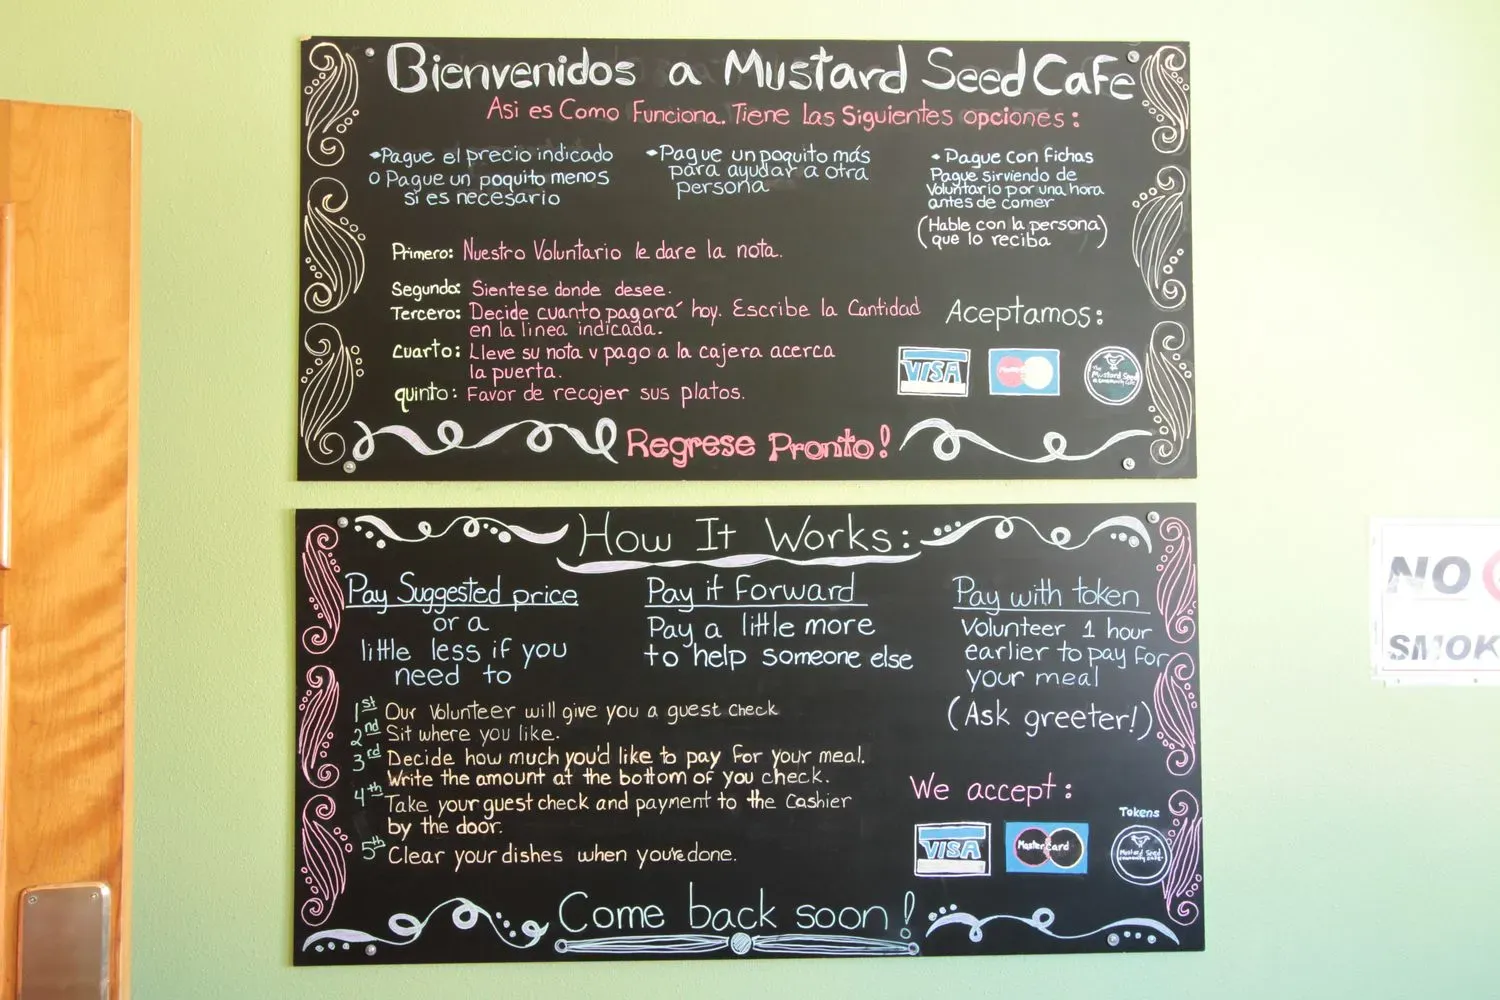 Bienvenidos a Mustard Seed Cafe
Asi es Como Funciona. Tiene las Siguientes opciones:
•Pague el precio indicado
o Pague un poquito menos
si es necesario
•Pague un poquito más
para ayudar a otra
persona
•Pague con fichas
Pague sirviendo de
Voluntario por una hora
antes de comer
(Hable con la persona)
que lo reciba
Primero: Nuestro Voluntario le dare la nota.
Segundo: Sientese donde desee.
Tercero: Decide cuanto pagará hoy. Escribe la Cantidad
en la linea indicada.
Cuarto: Lleve su nota y pago a la cajera acerca
la puerta.
quinto: Favor de recojer sus platos.
Aceptamos:
VISA
The
Mustard Seed
a community cafe
Regrese Pronto!
How It Works:
Pay Suggested price
or a
little less if you
need to
Pay it Forward
Pay a little more
to help someone else
Pay with token
Volunteer 1 hour
earlier to pay for
your meal
(Ask greeter!)
1st Our Volunteer will give you a guest check
2nd Sit where you like.
3rd Decide how much you'd like to pay for your meal.
Write the amount at the bottom of you check.
4th Take your guest check and payment to the cashier
by the door.
5th Clear your dishes when you're done.
We accept:
Tokens
VISA
MasterCard
Mustard Seed
community cafe
Come back soon!
NO
SMOK